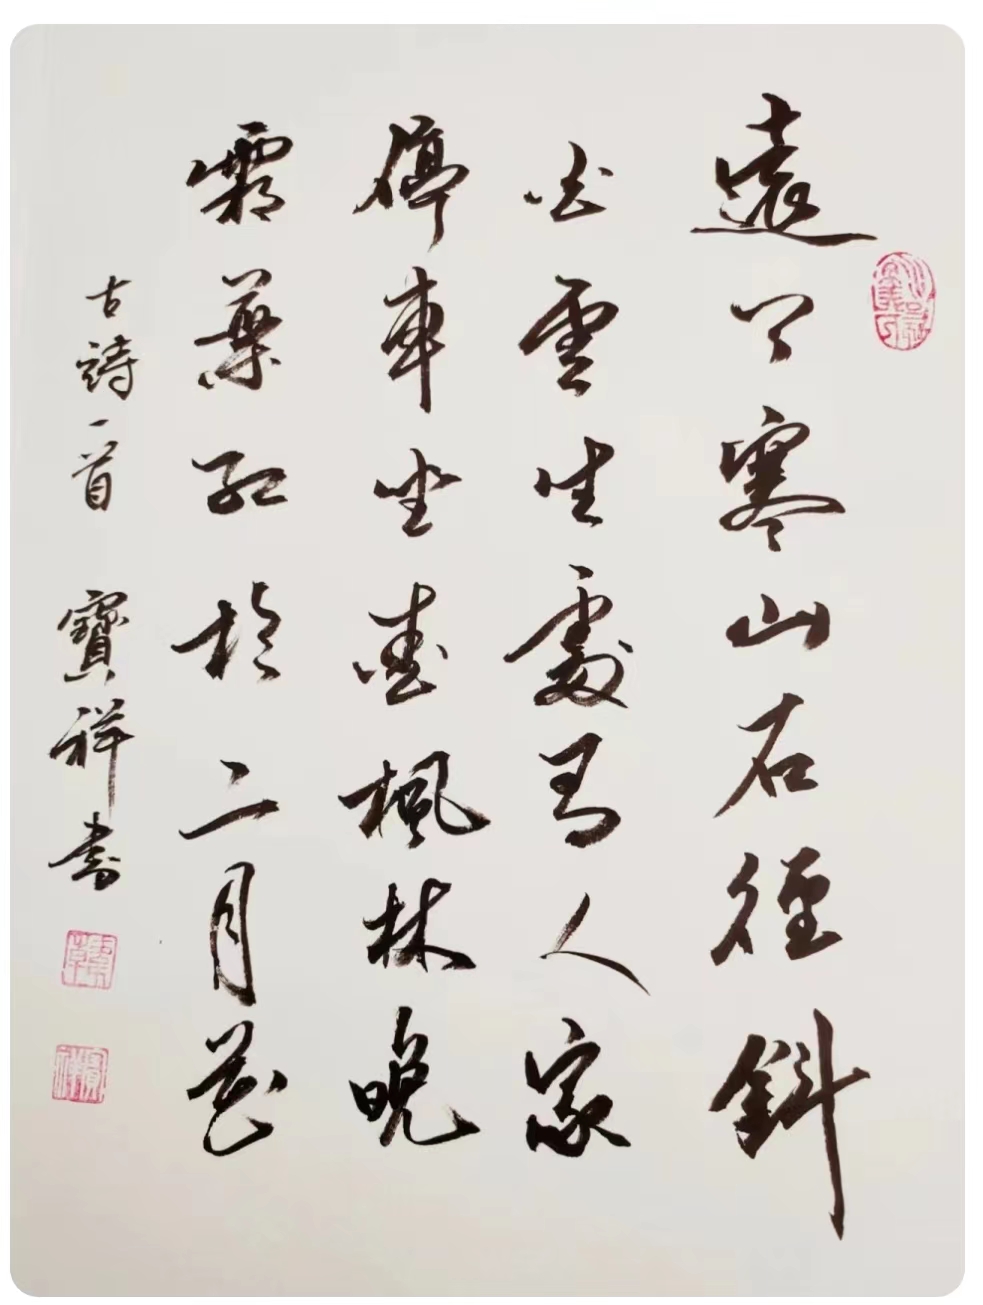 遠上寒山石徑斜
白雲生處有人家
停車坐愛楓林晚
霜葉紅於二月花
古詩一首 寶祥書